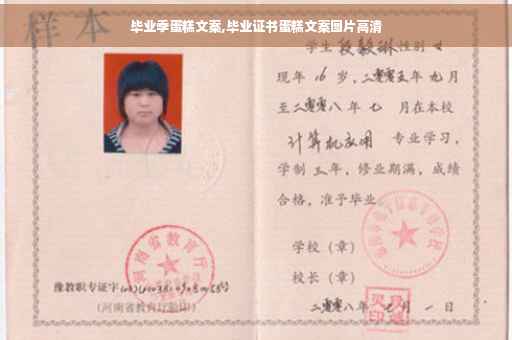 毕业季蛋糕文案,毕业证书蛋糕文案图片高清
样本
学生 段毅琳 性别 女
现年 16 岁,二零零五年 九 月
至二零零八年 七 月在本校
计算机应用 专业学习,
学制 三 年,修业期满,成绩
合格,准予毕业
学校(章)
校长(章)
二零零八年 七 月 一 日
河南省教育厅
豫教职专证字
号
(河南省教育厅验印)